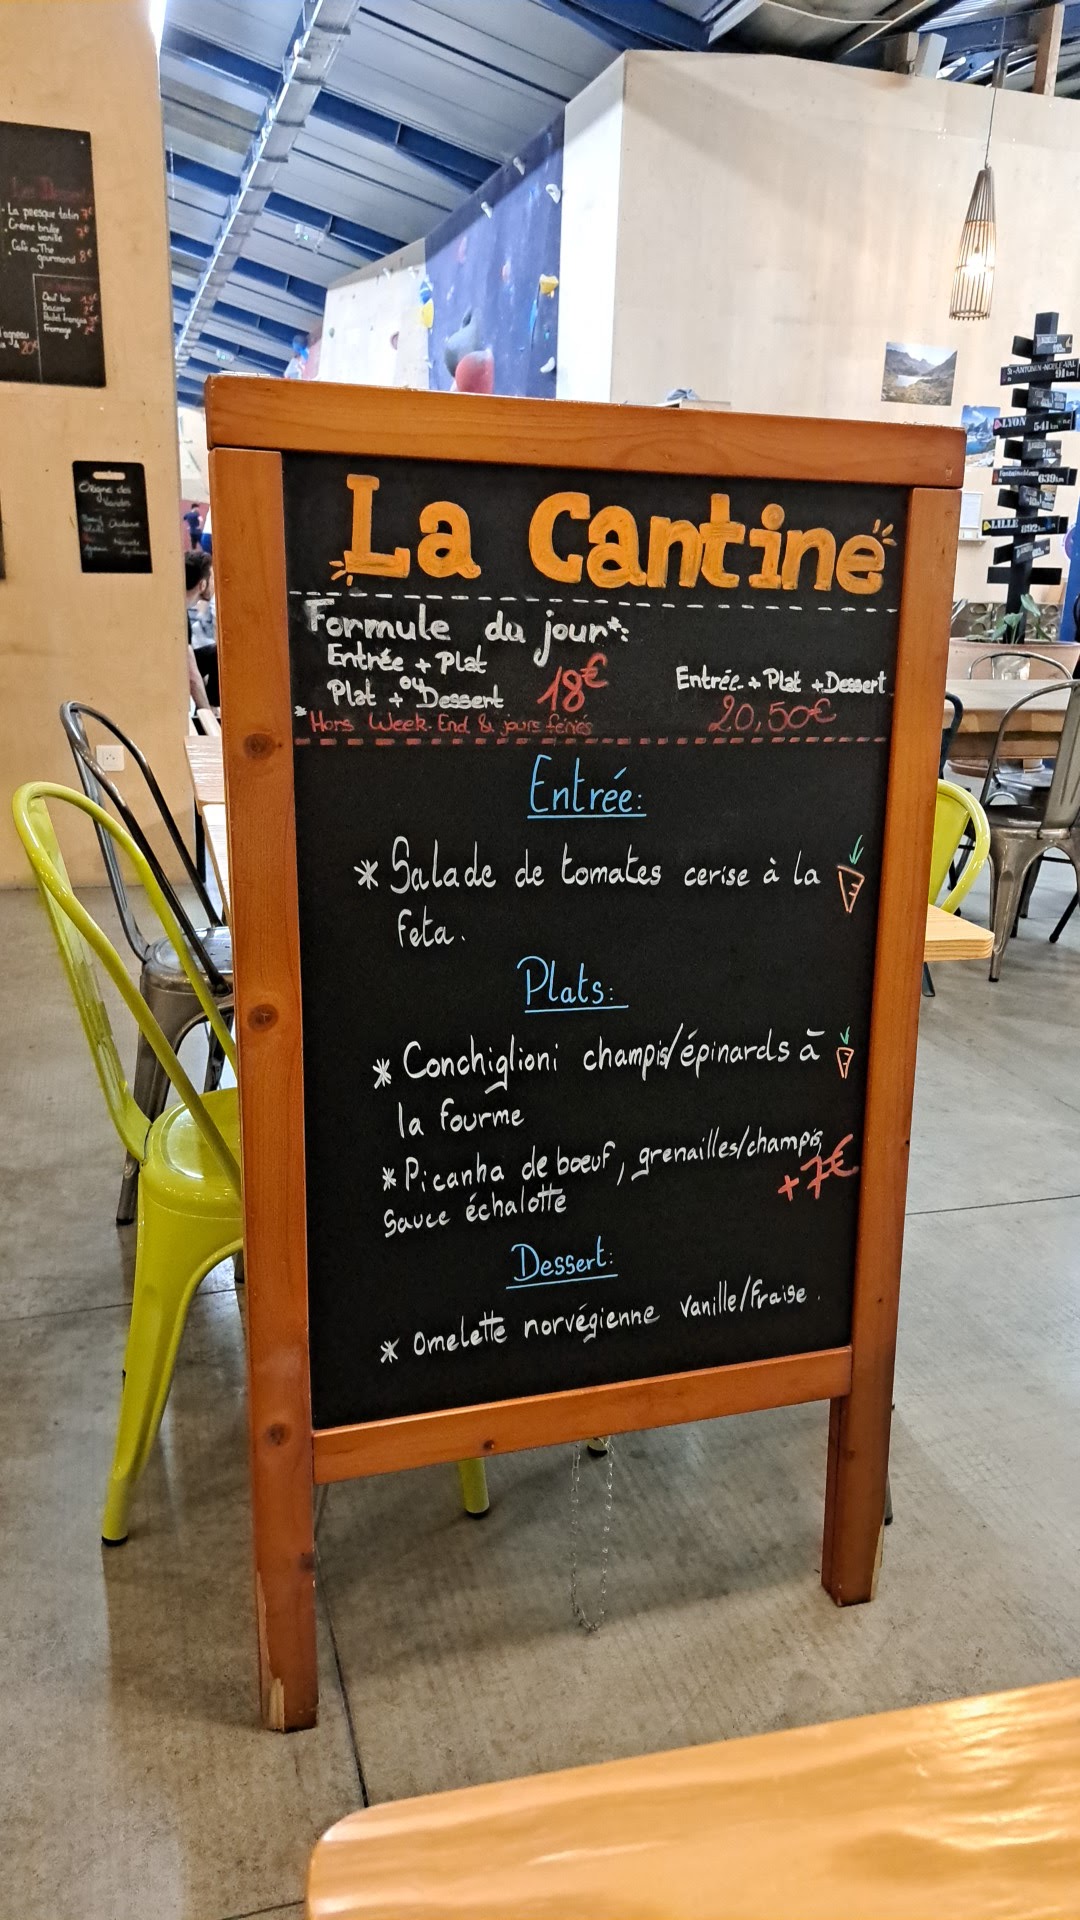 La Cantine
Formule du jour*:
Entrée + Plat
ou
Plat + Dessert
18€
Entrée + Plat + Dessert
20,50€
* Hors Week-End & jours fériés
Entrée:
* Salade de tomates cerise à la
feta.
Plats:
* Conchiglioni champis/épinards à
la fourme
* Picanha de boeuf, grenailles/champis,
+7€
Sauce échalotte
Dessert:
* Omelette norvégienne vanille/fraise.
La presque tatin 7€
Crème brulée
vanille 7€
Café ou Thé
gourmand 8€
Oeuf bio
Bacon
Fromage
20€
Origine des
Viandes
ST-ANTONIN-NOBLE-VAL
91km
LYON 541km
Fontainebleau
639km
LILLE 892km